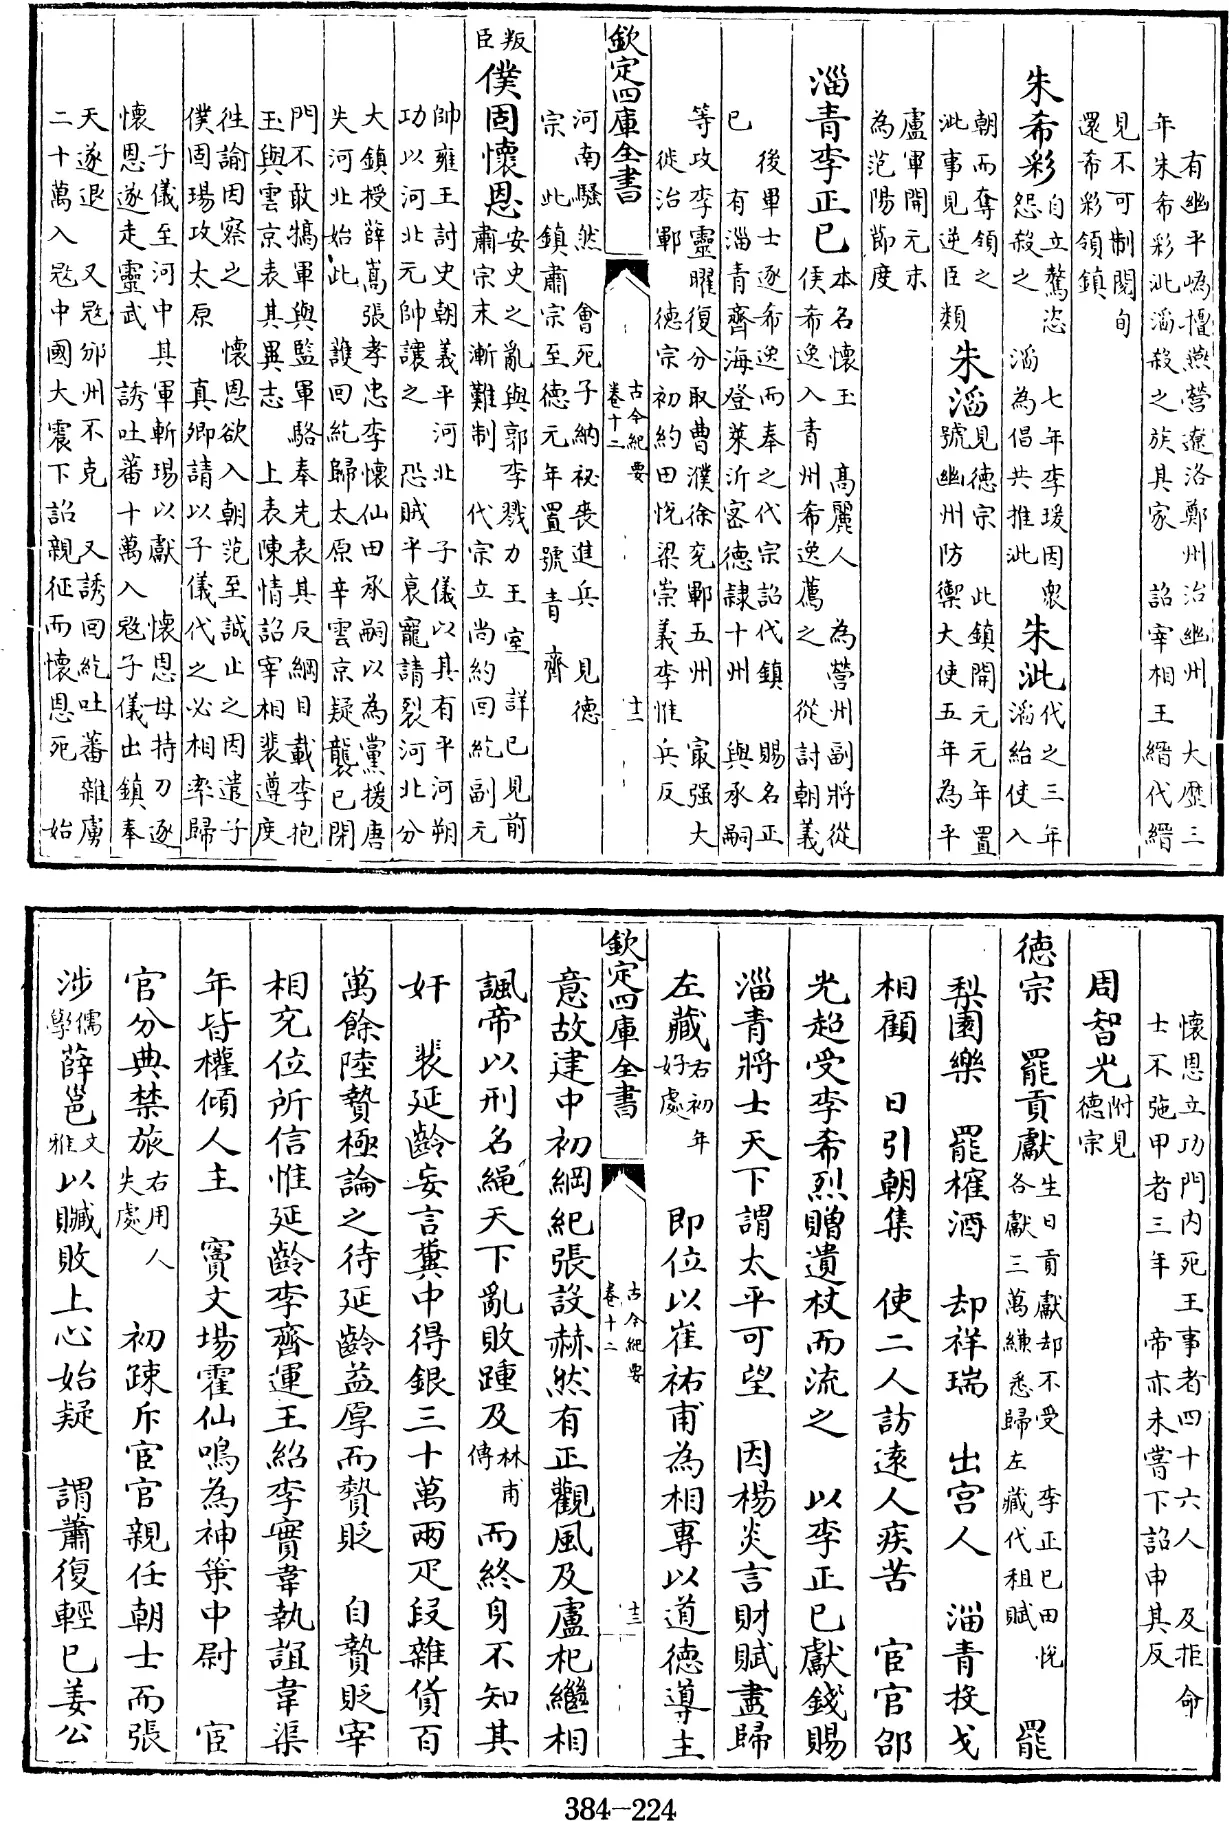 有幽平嬀檀燕營遼洛鄭州治幽州 大歴三
年朱希彩泚滔殺之族其家 詔宰相王縉代縉
見不可制閱旬
還希彩領鎮
朱希彩 自立驁恣 七年李瑗因衆
怨殺之 滔為倡共推泚
朱泚 代之三年
滔紿使入
朝而奪領之
泚事見逆臣類
朱滔 見德宗 此鎮開元元年置
號幽州防禦大使五年為平
盧軍開元末
為范陽節度
淄青李正已 本名懷玉 高麗人 為營州副將從
侯希逸入青州希逸薦之 從討朝義
後軍士逐希逸而奉之代宗詔代鎮 賜名正
已 有淄青齊海登萊沂密德棣十州 與承嗣
等攻李靈曜復分取曹濮徐兖鄆五州 㝡强大
徙治鄆 德宗初約田悅梁崇義李惟 兵反
欽定四庫全書
古今紀要
卷十二
十二
河南騷然 會死子納祕喪進兵 見德
宗 此鎮肅宗至德元年置號青 齊
叛臣
僕固懷恩 安史之亂與郭李戮力王室 詳已見前
肅宗末漸難制 代宗立尚約回紇副元
帥雍王討史朝義平河北 子儀以其有平河朔
功以河北元帥讓之 恐賊平衰寵請裂河北分
大鎮授薛嵩張孝忠李懷仙田承嗣以為黨援唐
失河北始此 護回紇歸太原辛雲京疑襲已閉
門不敢犒軍與監軍駱奉先表其反綱目載李抱
玉與雲京表其異志 上表陳情詔宰相裴遵度
徃諭因察之 懷恩欲入朝范至誠止之因遣子
僕固瑒攻太原 真卿請以子儀代之必相率歸
子儀至河中其軍斬瑒以獻 懷恩母持刀逐
懷恩遂走靈武 誘吐蕃十萬入㓂子儀出鎮奉
天遂退 又㓂邠州不克 又誘回紇吐蕃雜虜
二十萬入㓂中國大震下詔親征而懷恩死 始
懷恩立功門内死王事者四十六人 及拒命
士不弛甲者三年 帝亦未嘗下詔申其反
周智光 附見
德宗
德宗 罷貢獻 生日貢獻却不受 李正已田悅
各獻三萬縑悉歸左藏代租賦 罷
梨園樂 罷榷酒 却祥瑞 出宫人 淄青投戈
相顧 日引朝集 使二人訪遠人疾苦 宦官邵
光超受李希烈贈遺杖而流之 以李正已獻錢賜
淄青將士天下謂太平可望 因楊炎言財賦盡歸
左藏 右初年
好處 即位以崔祐甫為相專以道德導主
欽定四庫全書
古今紀要
卷十二
十三
意故建中初綱紀張設赫然有正觀風及盧杞繼相
諷帝以刑名繩天下亂敗踵及 林甫
傳 而終身不知其
奸 裴延齡妄言糞中得銀三十萬兩疋段雜貨百
萬餘陸贄極論之待延齡益厚而贄貶 自贄貶宰
相充位所信惟延齡李齊運王紹李實韋執誼韋渠
年皆權傾人主 竇文場霍仙鳴為神策中尉 宦
官分典禁旅 右用人
失處 初疎斥宦官親任朝士而張
涉 儒
學 薛邕 文
雅 以贓敗上心始疑 謂蕭復輕已姜公
384-224